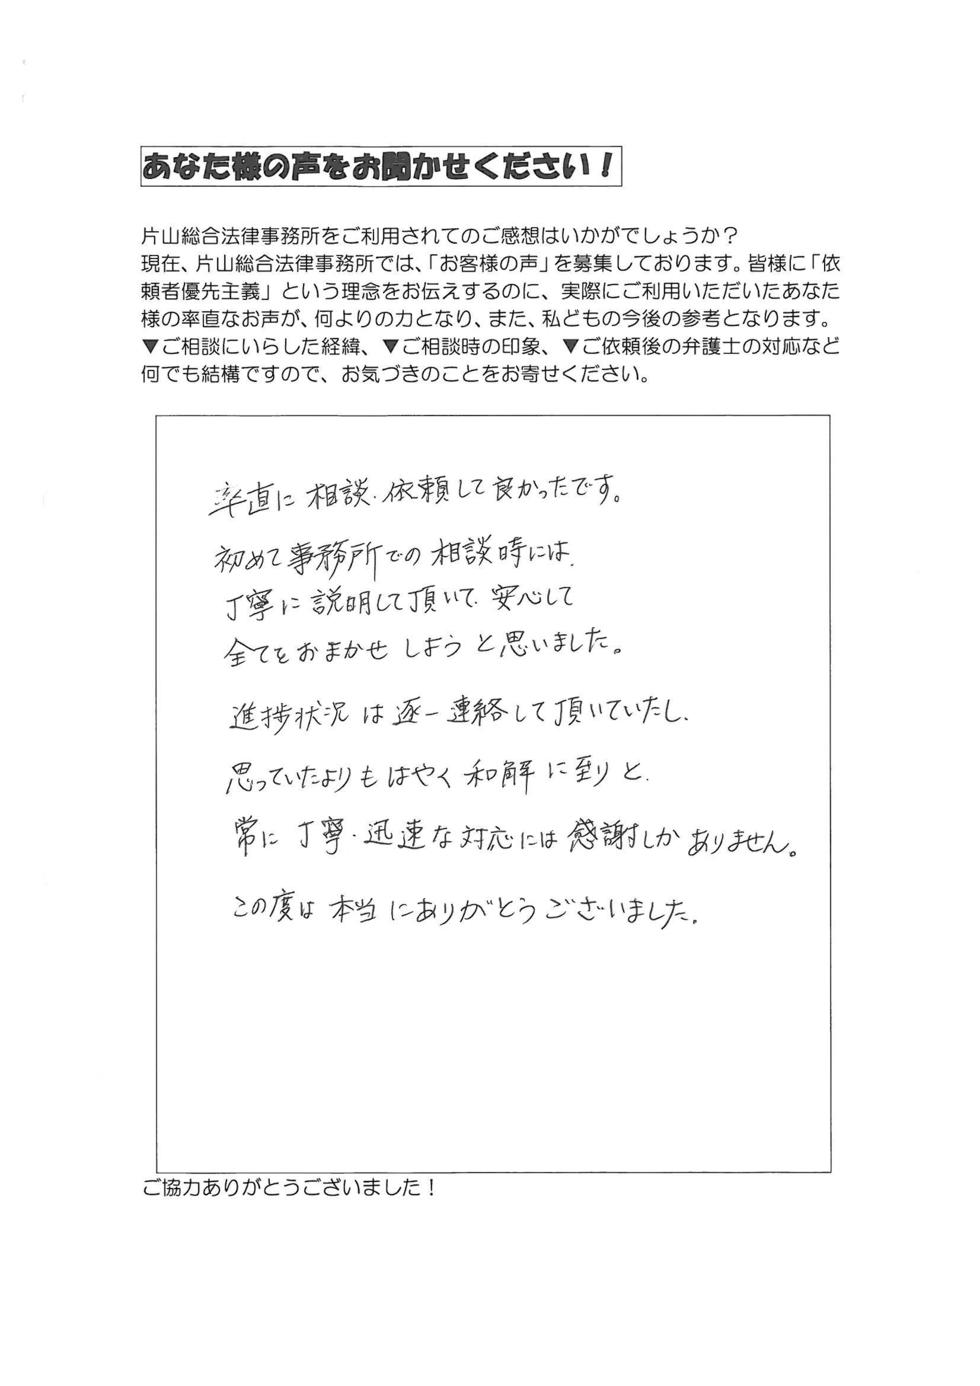 あなた様の声をお聞かせください！
片山総合法律事務所をご利用されてのご感想はいかがでしょうか？
現在、片山総合法律事務所では、「お客様の声」を募集しております。皆様に「依
頼者優先主義」という理念をお伝えするのに、実際にご利用いただいたあなた
様の率直なお声が、何よりの力となり、また、私どもの今後の参考となります。
▼ご相談にいらした経緯、▼ご相談時の印象、▼ご依頼後の弁護士の対応など
何でも結構ですので、お気づきのことをお寄せください。
率直に相談・依頼して良かったです。
初めて事務所での相談時には、
丁寧に説明して頂いて、安心して
全てをおまかせしようと思いました。
進捗状況は逐一連絡して頂いていたし、
思っていたよりもはやく和解に至りと、
常に丁寧・迅速な対応には感謝しかありません。
この度は本当にありがとうございました。
ご協力ありがとうございました！